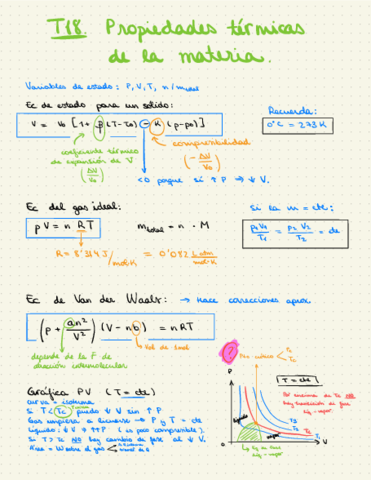 T18. Propiedades térmicas
de la materia.
Variables de estado: P, V, T, n/m
Ec de estado para un sólido:
V = V₀ [1 + β (T-T₀) - k (p-p₀)]
Recuerda:
0°C = 273 K
coeficiente térmico
de expansión de V
(ΔV/V₀)
compresibilidad
(-ΔV/V₀)
<0 porque si ↑ P → ↓ V.
Ec del gas ideal:
pV = n RT
m total = n · M
Si la m = cte:
P₁V₁/T₁ = P₂V₂/T₂ = cte
R = 8'314 J/mol·K = 0'082 L·atm/mol·K
Ec de Van der Waals: → Hace correcciones aprox.
(p + an²/V²) (V - nb) = nRT
depende de la F de
atracción intermolecular
Vol de 1 mol
?
Pto crítico
Pc
Tc
Gráfica PV (T = cte)
curva = isoterma
Si T < Tc puedo ↓ V sin ↑ P
Gas empieza a licuarse → P y T = cte
Líquido: ↓ V → ↑↑P (es poco compresible).
Si T > Tc NO hay cambio de fase al ↓ V.
Área = W sobre el gas
P
T = cte
Por encima de Tc NO
hay transición de fase
líq - vapor.
líquido
vapor
T₃
T₂
T₁
V
líq - vapor